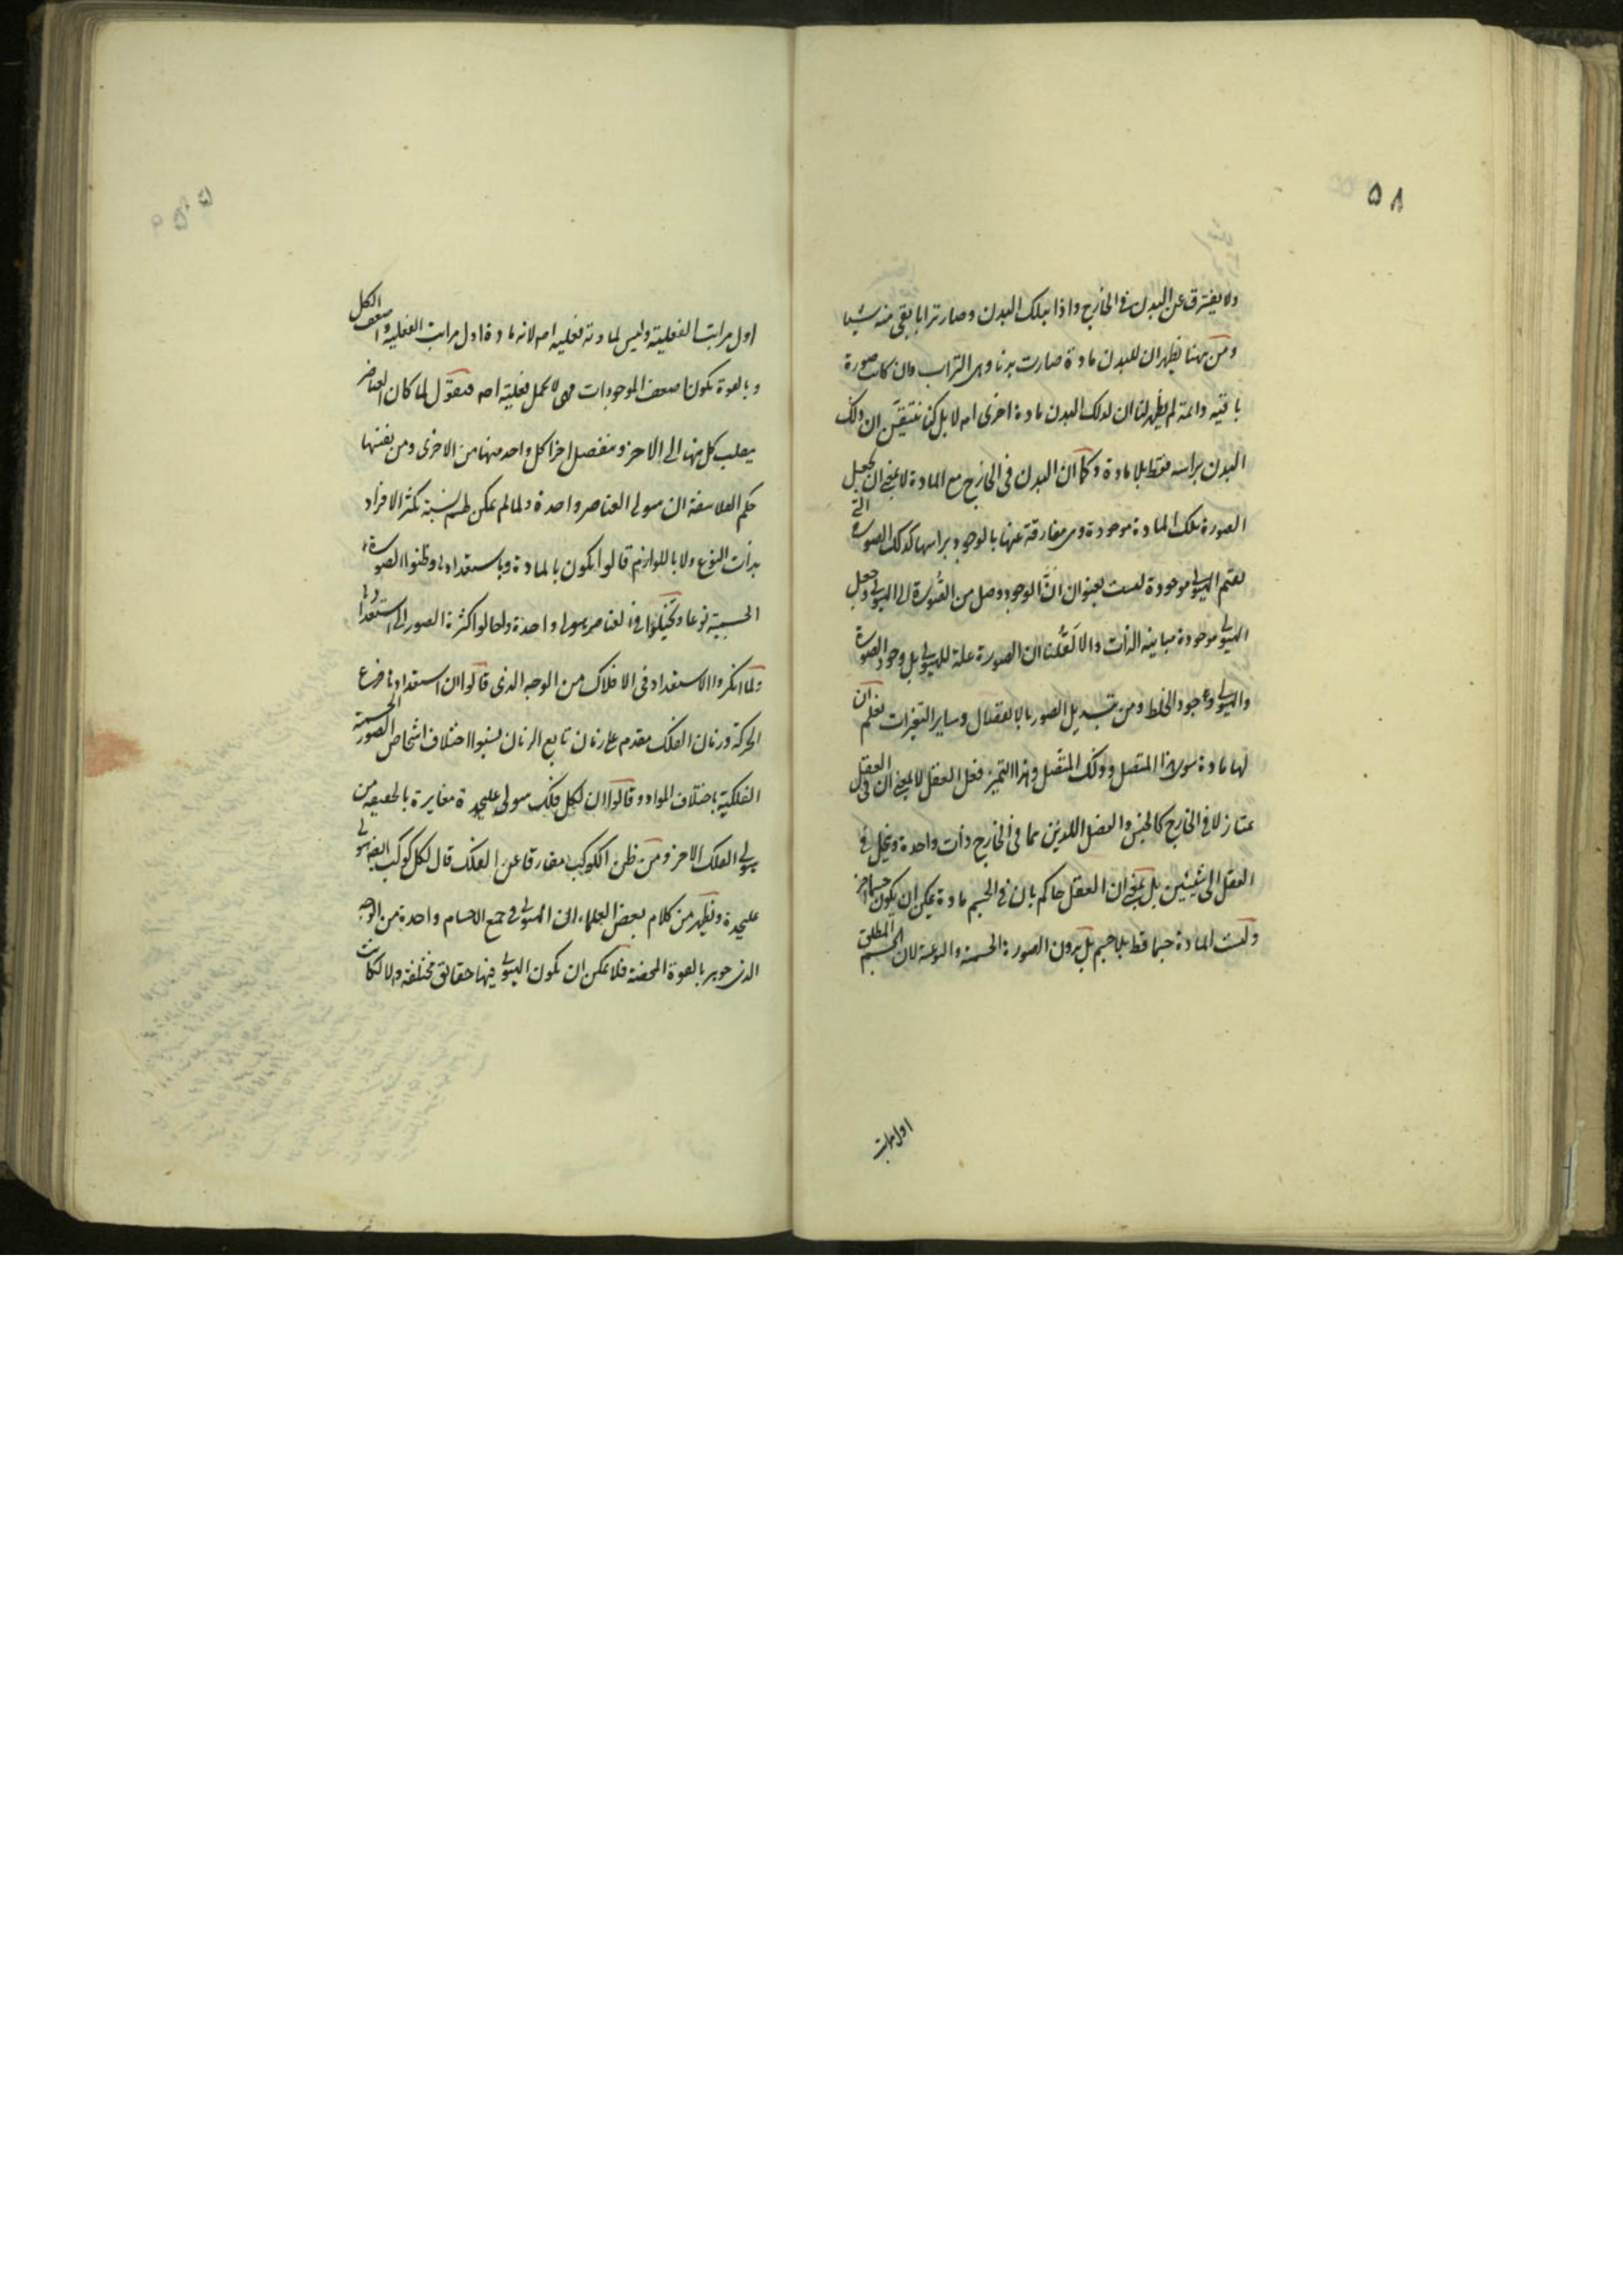 ۵۸
ولا يفترق عن البدن في الخارج واذا هلك البدن وصار ترابا بقى منه شيئا
ومن ههنا يظهر ان للبدن مادة صارت بدنا وهى التراب وان كانت صورة
باقية دائمة لم يظهر لنا ان لذلك البدن مادة اخرى ام لا بل كنا نتيقن ان ذلك
البدن براسه فقط بلا مادة وكما ان البدن في الخارج مع المادة لا بمعنى ان يجعل
الصورة تلك المادة موجودة وهى مفارقة عنها بالوجود براسها كذلك الصورة التي
الهيولى موجودة ليست بعنوان ان الوجود وصل من الصورة الى الهيولى وجعل
الهيولى موجودة مباينة الذات والا لقلنا ان الصورة علة للهيولى بل وجود الصورة
والهيولى وجود الخلط ومن تبديل الصور بالانفصال وساير التغيرات نعلم ان
لها مادة سوى هذا المتصل وذلك المتصل وهذا التميز فعل العقل لا بمعنى ان في العقل
ممتاز لا في الخارج كالجنس والفصل اللذين هما في الخارج ذات واحدة وينحل في
العقل الى شيئين بل بمعنى ان العقل حاكم بان في الجسم مادة يمكن ان يكون جسما اخر
وليست المادة جسما قط بلا جسم بل بدون الصورة الجسمية والنوعية لان الجسم المطلق
اول مراتب
۵۹
اول مراتب الفعلية وليس لمادته فعلية اصلا لانه مادة اول مراتب الفعلية واضعف الكل
وبالقوة يكون اضعف الموجودات فهى لا تحمل فعلية اصلا فنقول لما كان العناصر
ينقلب كل منها الى الاخر وينفصل اجزاء كل واحد منها من الاخرى ومن نفسها
حكم الفلاسفة ان هيولى العناصر واحدة ولما لم يمكن لهم نسبة تكثر الافراد
بذات النوع ولا باللوازم قالوا يكون بالمادة وباستعدادها وظنوا الصورة
الجسمية نوعا وتخيلوا في العناصر هيولى واحدة واحالوا كثرة الصور الى استعدادها
ولما انكروا الاستعداد في الافلاك من الوجه الذى قالوا ان استعدادها فرع
الحركة وزمان الفلك مقدم على زمان تابع الزمان نسبوا اختلاف اشخاص الصور الجسمية
الفلكية باختلاف المواد وقالوا ان لكل فلك هيولى عليحدة مغايرة بالحقيقة من
هيولى الفلك الاخر ومن ظن الكوكب مفارقا عن الفلك قال لكل كوكب ايضا هيولى
عليحدة ويظهر من كلام بعض العلماء ان الهيولى في جميع الاجسام واحدة من الوجه
الذى هو بالقوة المحضة فلا يمكن ان يكون الهيولى فيها حقائق مختلفة والا لكانت